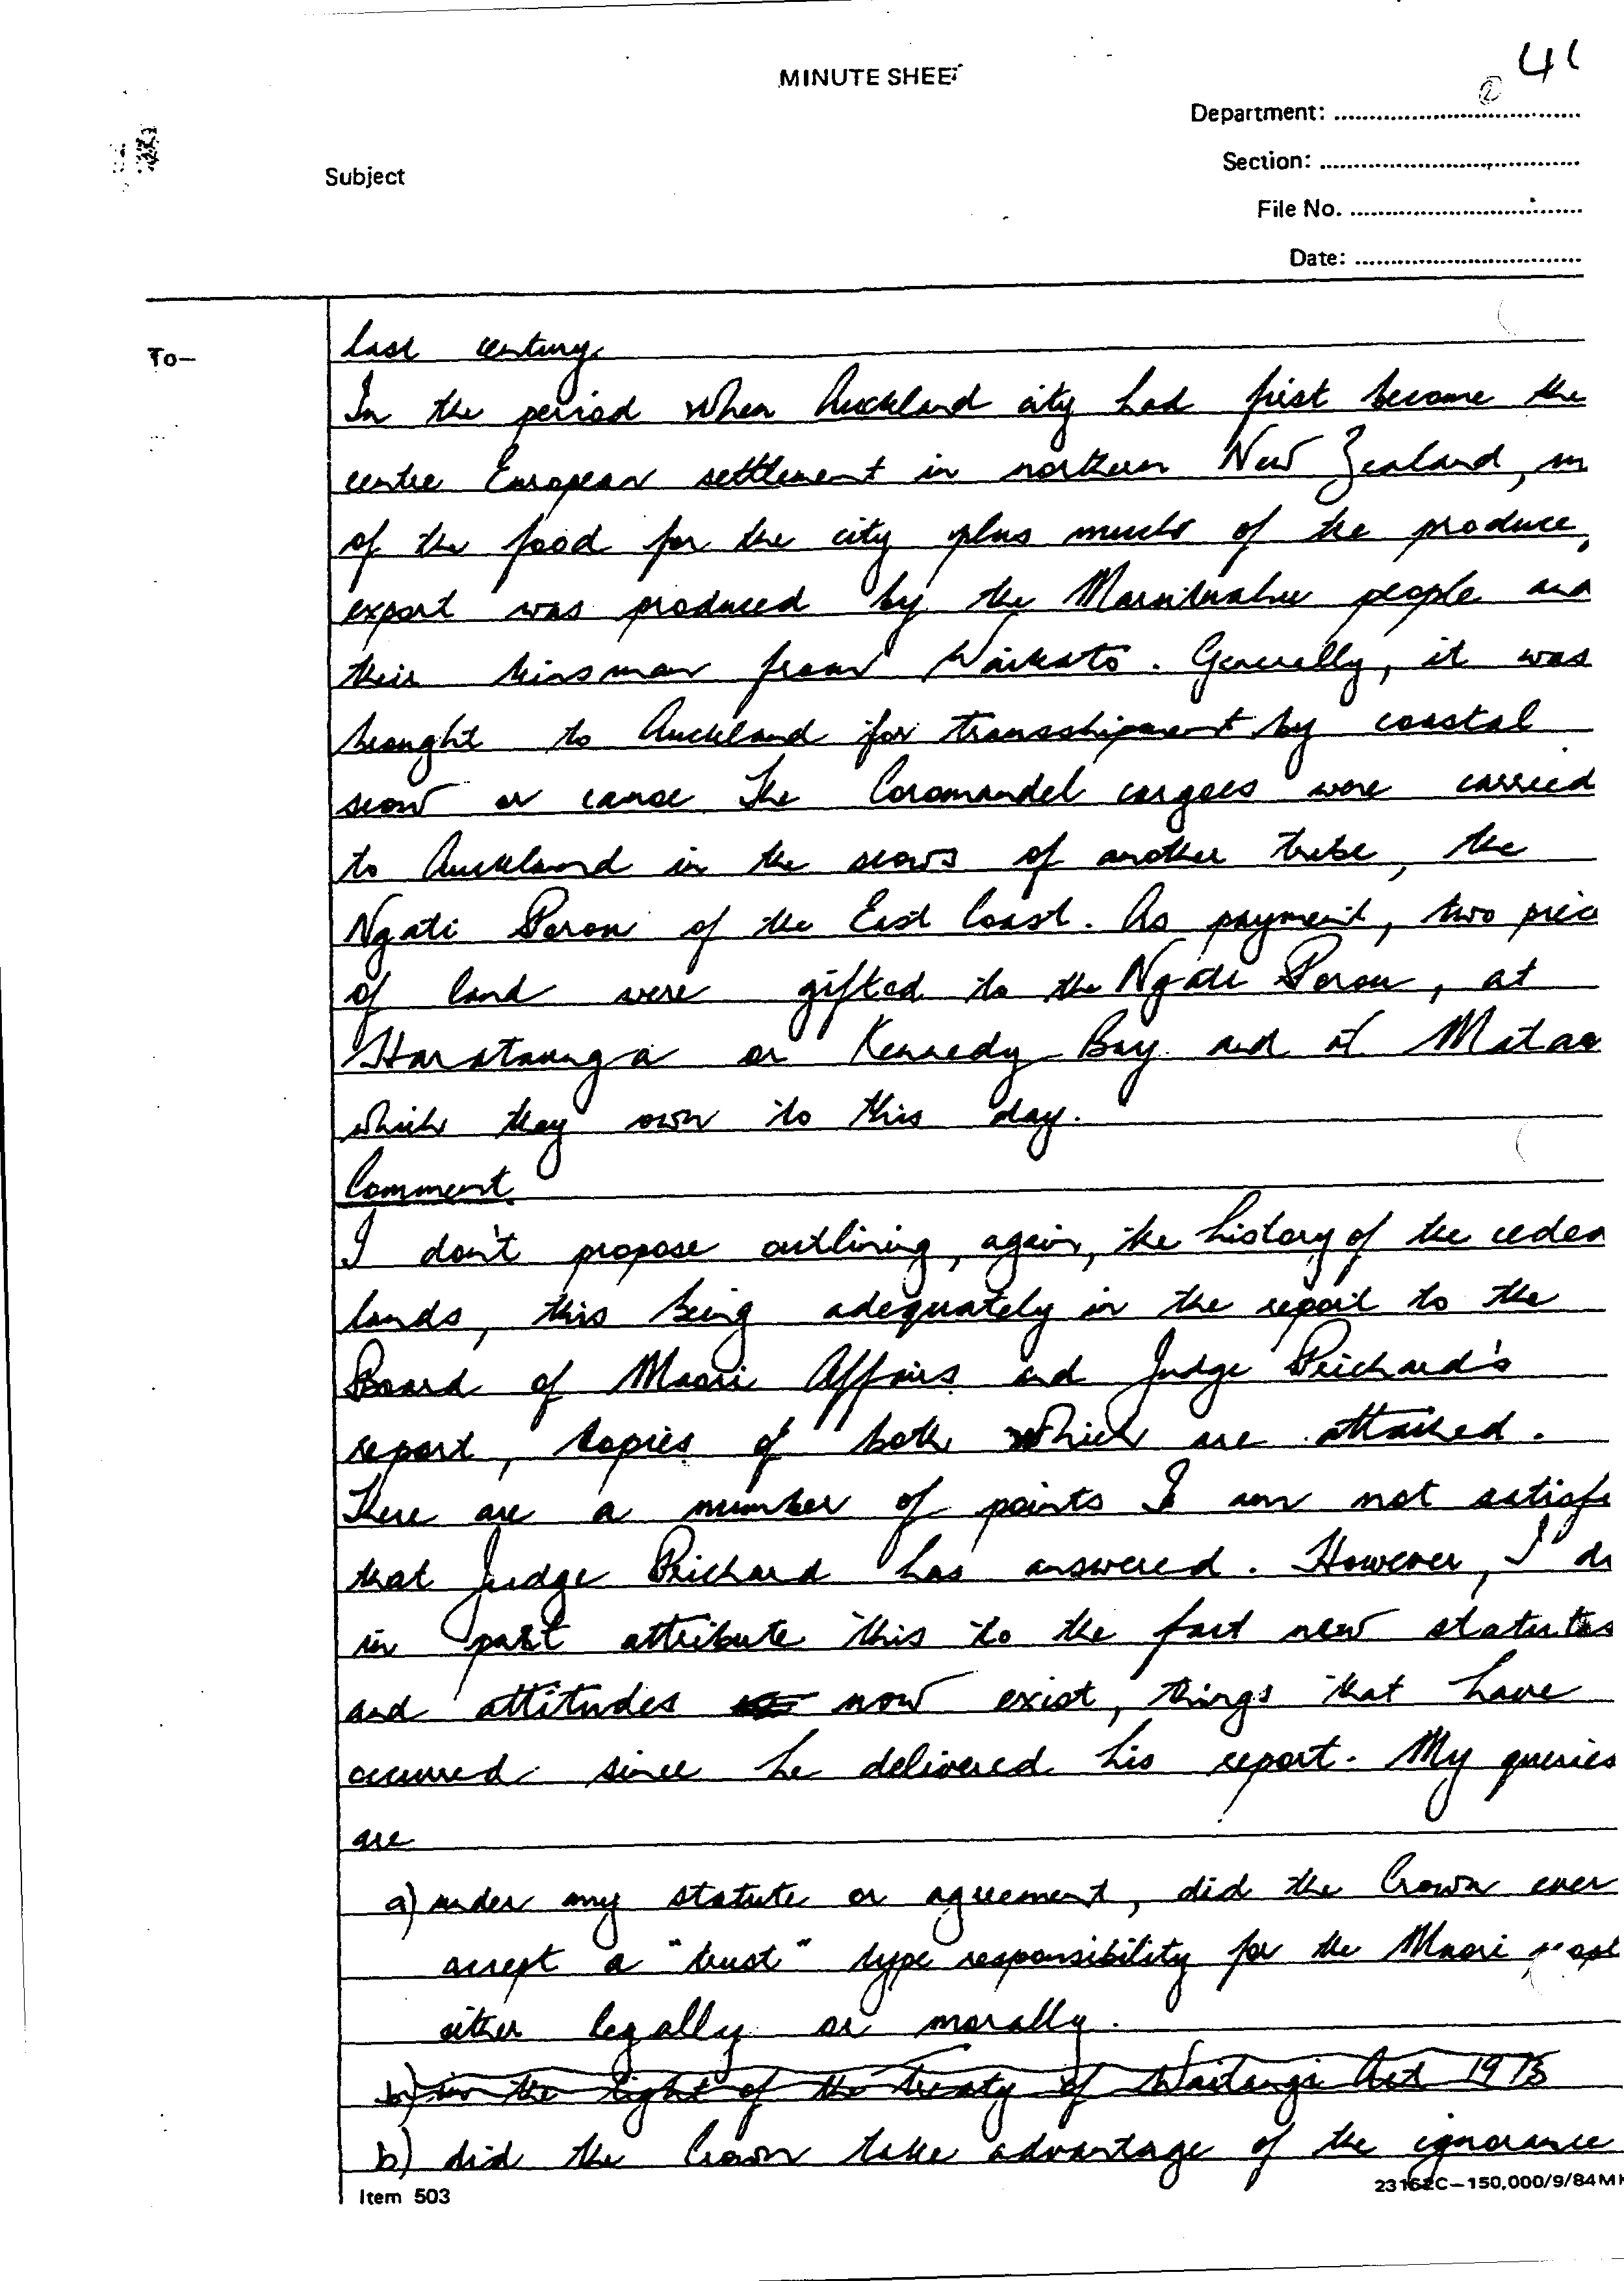 41
MINUTE SHEET
2
Department:
Section:
Subject
File No.
Date:
To—
last century.
In the period when Auckland city had first become the
centre European settlement in northern New Zealand, m
of the food for the city plus much of the produce,
export was produced by the Marutuahu people and
their kinsman from Waikato. Generally, it was
brought to Auckland for transshipment by coastal
scow or canoe The Coromandel cargoes were carried
to Auckland in the scows of another tribe, the
Ngati Porou of the East Coast. As payment, two piec
of land were gifted to the Ngati Porou, at
Harataunga or Kennedy Bay and at Matao
which they own to this day.
Comment.
I don't propose outlining, again, the history of the ceded
lands, this being adequately in the report to the
Board of Maori Affairs and Judge Prichard's
report, copies of both which are attached.
There are a number of points I am not satisfi
that Judge Prichard has answered. However, I do
in part attribute this to the fact new statutes
and attitudes now exist, things that have
occurred since he delivered his report. My queries
are
a) under any statute or agreement, did the Crown ever
accept a "trust" type responsibility for the Maori peopl
either legally or morally.
b) in the light of the Treaty of Waitangi Act 1975
b) did the Crown take advantage of the ignorance
Item 503
23162C—150,000/9/84MK